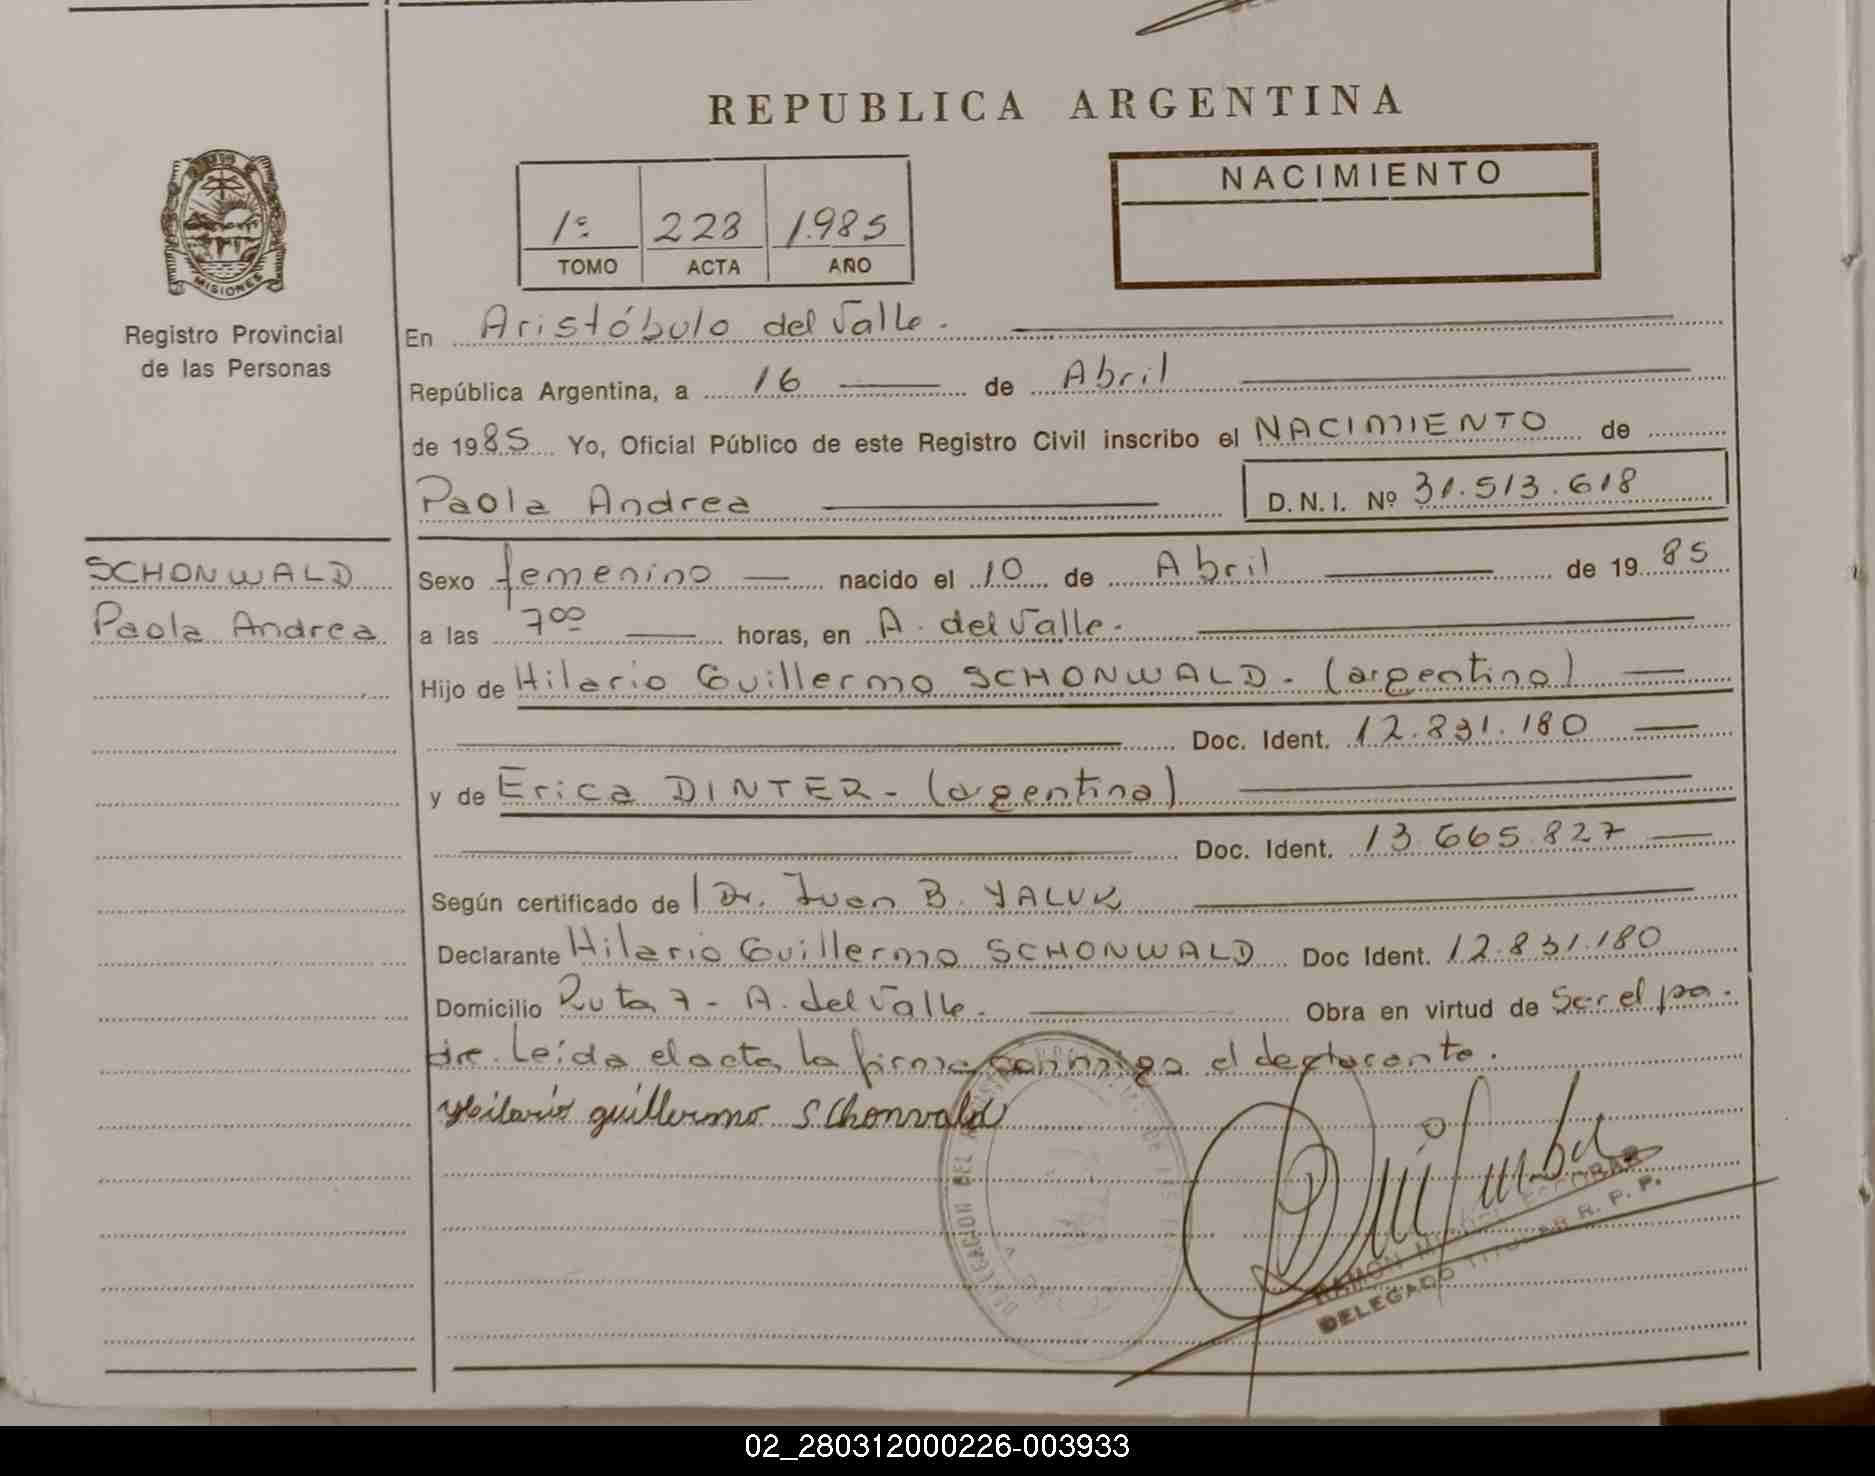 REPUBLICA ARGENTINA
MISIONES
Registro Provincial
de las Personas
1º 223 1.985
TOMO ACTA AÑO
NACIMIENTO
En Aristóbulo del Valle.
República Argentina, a 16 de Abril
de 1985 Yo, Oficial Público de este Registro Civil inscribo el NACIMIENTO de
Paola Andrea D.N.I. Nº 31.513.618
SCHONWALD
Paola Andrea
Sexo femenino nacido el 10 de Abril de 1985
a las 7 00 horas, en A. del Valle.
Hijo de Hilario Guillermo SCHONWALD. (argentino)
Doc. Ident. 12.831.180
y de Erica DINTER - (argentina)
Doc. Ident. 13.665.827
Según certificado de Dr. Juan B. YALUK
Declarante Hilario Guillermo SCHONWALD Doc Ident. 12.831.180
Domicilio Ruta 7 - A. del Valle. Obra en virtud de Ser el pa-
dre. Leída el acta la firma conmigo el declarante.
Hilario guillermo SChonvald
DELEGACION DEL
RAMON
DELEGADO TITULAR R. P. P.
02_280312000226-003933